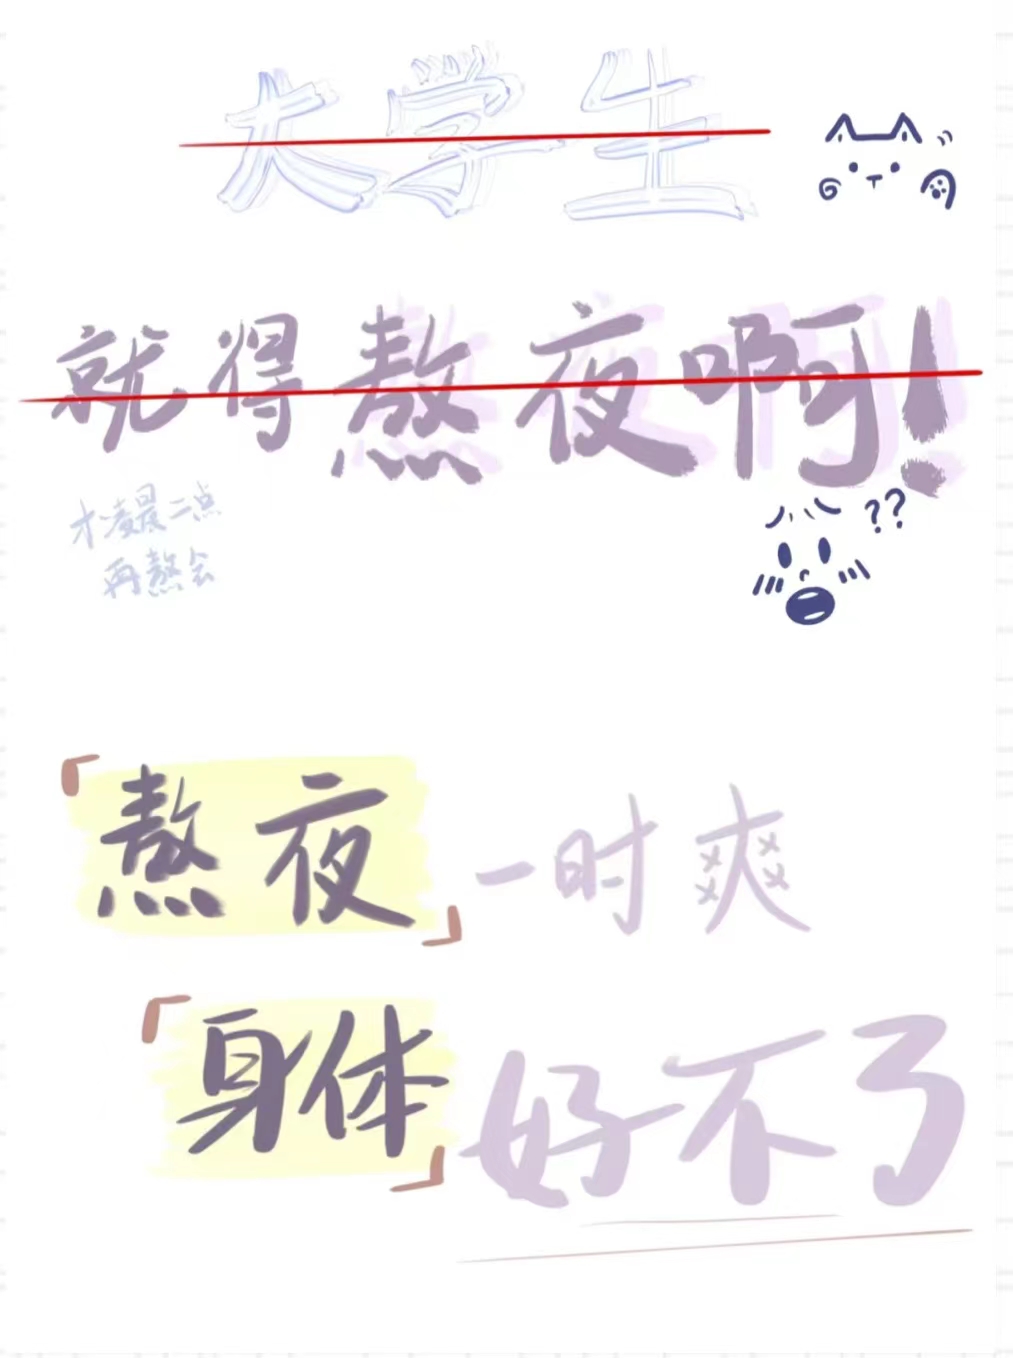 大学生
就得熬夜啊！
才凌晨二点
再熬会
??
「熬夜」一时爽
「身体」好不了